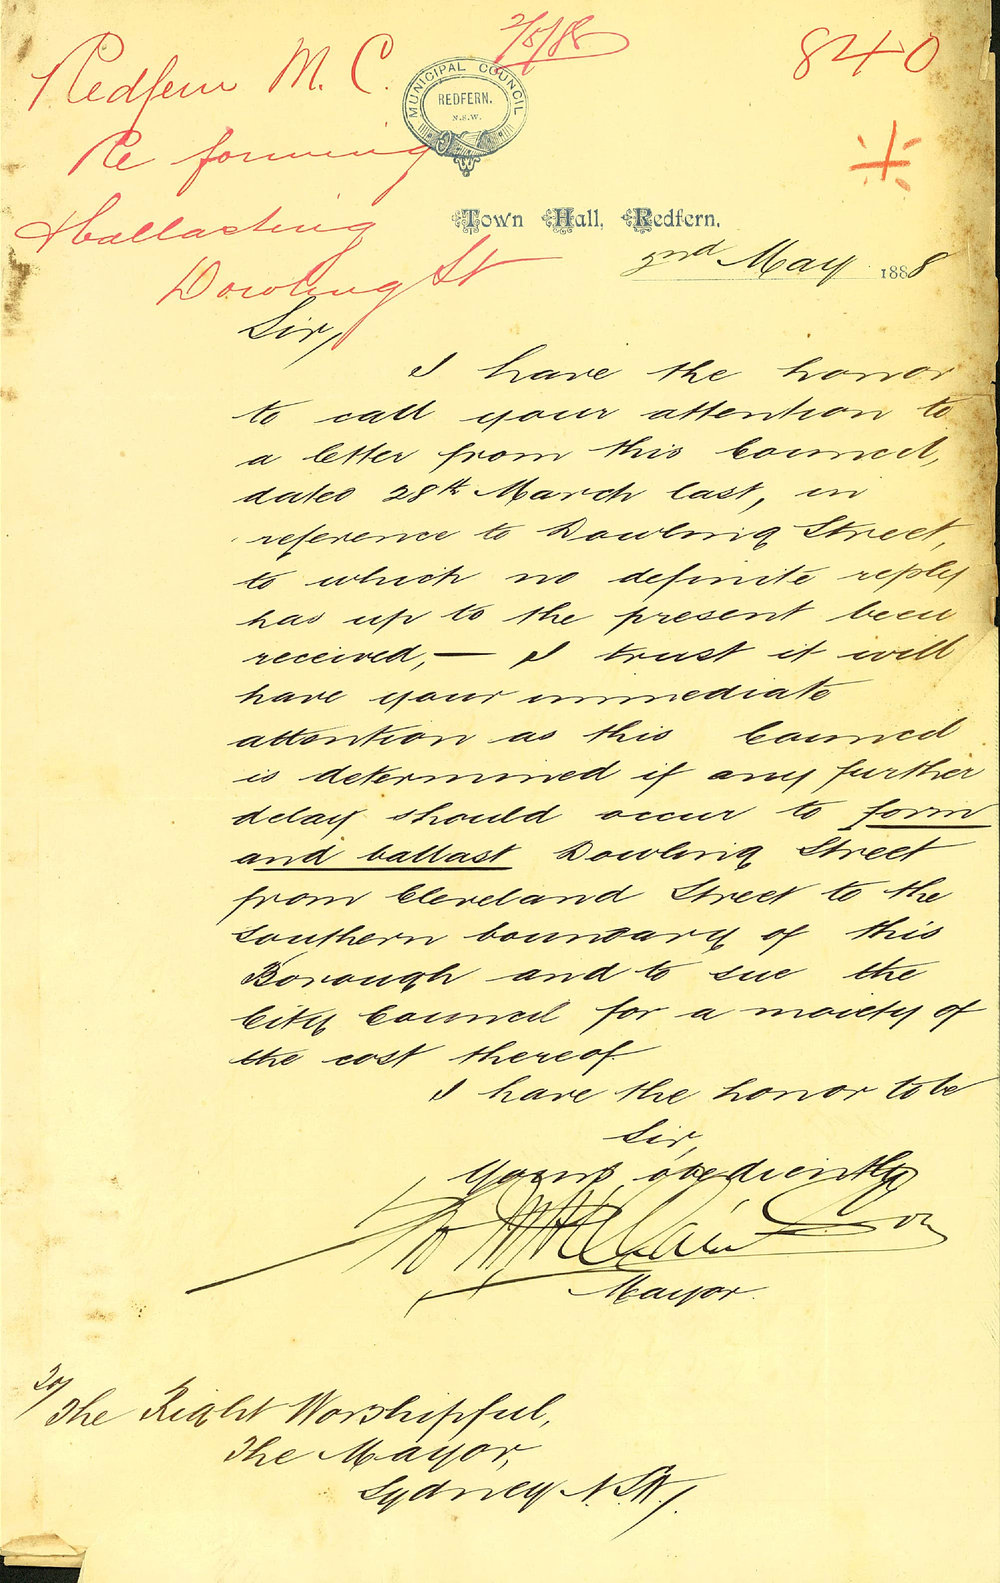 Redfern M. C.
2/5/88
840
Re forming
& Ballasting
Dowling St
MUNICIPAL COUNCIL
REDFERN.
N.S.W.
Town Hall, Redfern,
2nd May 1888
Sir,
I have the honor
to call your attention to
a letter from this Council,
dated 28th March last, in
reference to Dowling Street,
to which no definite reply
has up to the present been
received, — I trust it will
have your immediate
attention as this Council
is determined if any further
delay should occur to form
and ballast Dowling Street
from Cleveland Street to the
southern boundary of this
Borough and to sue the
City Council for a moiety of
the cost thereof
I have the honor to be
Sir,
Yours obediently
Mayor.
The Right Worshipful,
The Mayor,
Sydney N.S.W.